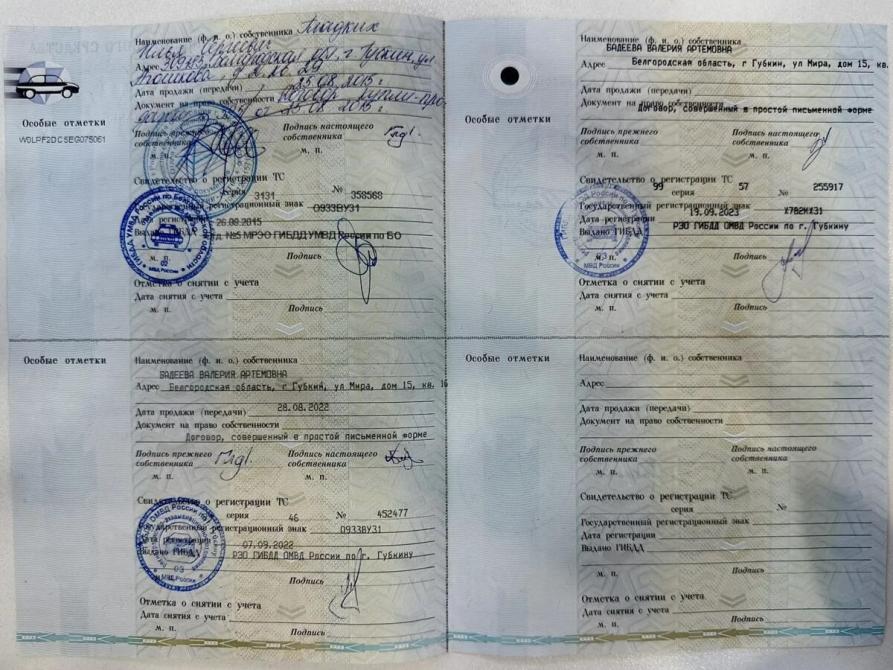 Особые отметки
W0LPF2DC5EG075061
Наименование (ф. и. о.) собственника Гладких
Илья Сергеевич
Адрес Белгородская обл. г. Губкин, ул.
Дата продажи (передачи) 25.08.2015г
Документ на право собственности Договор купли-про
дажи от 25.08.2015г
Подпись прежнего собственника
Подпись настоящего собственника
м. п.
м. п.
Свидетельство о регистрации ТС
серия 3131 № 358568
Государственный регистрационный знак О933ВУ31
Дата регистрации 26.08.2015
Выдано ГИБДД отд. №5 МРЭО ГИБДД УМВД России по БО
м. п.
Подпись
Отметка о снятии с учета
Дата снятия с учета
м. п.
Подпись
Особые отметки
Наименование (ф. и. о.) собственника
БАДЕЕВА ВАЛЕРИЯ АРТЕМОВНА
Адрес Белгородская область, г Губкин, ул Мира, дом 15, кв. 16
Дата продажи (передачи) 28.08.2022
Документ на право собственности
Договор, совершенный в простой письменной форме
Подпись прежнего собственника
Подпись настоящего собственника
м. п.
м. п.
Свидетельство о регистрации ТС
серия 46 № 452477
Государственный регистрационный знак О933ВУ31
Дата регистрации 07.09.2022
Выдано ГИБДД РЭО ГИБДД ОМВД России по г. Губкину
м. п.
Подпись
Отметка о снятии с учета
Дата снятия с учета
м. п.
Подпись
Особые отметки
Наименование (ф. и. о.) собственника
БАДЕЕВА ВАЛЕРИЯ АРТЕМОВНА
Адрес Белгородская область, г Губкин, ул Мира, дом 15, кв.
Дата продажи (передачи)
Документ на право собственности
Договор, совершенный в простой письменной форме
Подпись прежнего собственника
Подпись настоящего собственника
м. п.
м. п.
Свидетельство о регистрации ТС
серия 99 57 № 255917
Государственный регистрационный знак Х782МХ31
Дата регистрации 19.09.2023
Выдано ГИБДД РЭО ГИБДД ОМВД России по г. Губкину
м. п.
Подпись
Отметка о снятии с учета
Дата снятия с учета
м. п.
Подпись
Особые отметки
Наименование (ф. и. о.) собственника
Адрес
Дата продажи (передачи)
Документ на право собственности
Подпись прежнего собственника
Подпись настоящего собственника
м. п.
м. п.
Свидетельство о регистрации ТС
серия №
Государственный регистрационный знак
Дата регистрации
Выдано ГИБДД
м. п.
Подпись
Отметка о снятии с учета
Дата снятия с учета
м. п.
Подпись